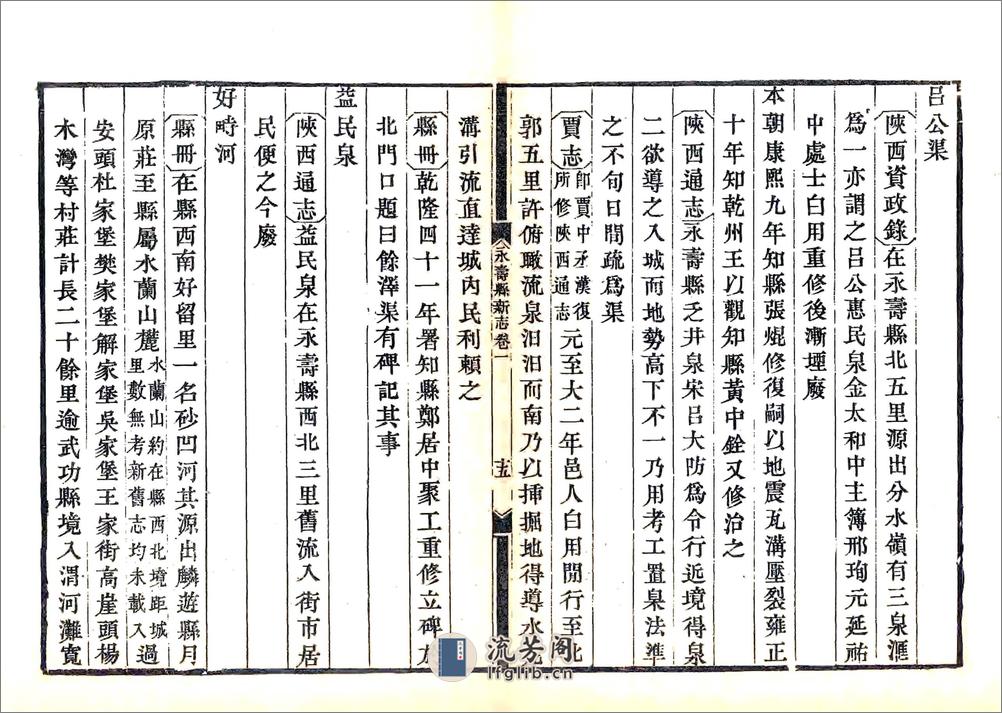 呂公渠
陝西資政錄在永壽縣北五里源出分水嶺有三泉滙
為一亦謂之呂公惠民泉金太和中主簿邢珣元延祐
中處士白用重修後漸堙廢
本朝康熙九年知縣張焜修復嗣以地震瓦溝壓裂雍正
十年知乾州王以觀知縣黃中銓又修治之
陝西通志永壽縣乏井泉宋呂大防為令行近境得泉
二欲導之入城而地勢高下不一乃用考工置臬法準
之不旬日間疏為渠
賈志即賈中丞漢復所修陝西通志元至大二年邑人白用閒行至北
郭五里許俯瞰流泉汩汩而南乃以挿掘地得導水
溝引流直達城內民利賴之
縣冊乾隆四十一年署知縣鄭居中聚工重修立碑
北門口題曰餘澤渠有碑記其事
益民泉
陝西通志益民泉在永壽縣西北三里舊流入街市居
民便之今廢
好畤河
縣冊在縣西南好留里一名砂凹河其源出麟遊縣月
原莊至縣屬水蘭山麓水蘭山約在縣西北境距城里數無考新舊志均未載入過
安頭杜家堡樊家堡解家堡吳家堡王家街高崖頭楊
木灣等村莊計長二十餘里逾武功縣境入渭河灘寬
永壽縣新志卷一
十五
流芳阁
lfglib.cn